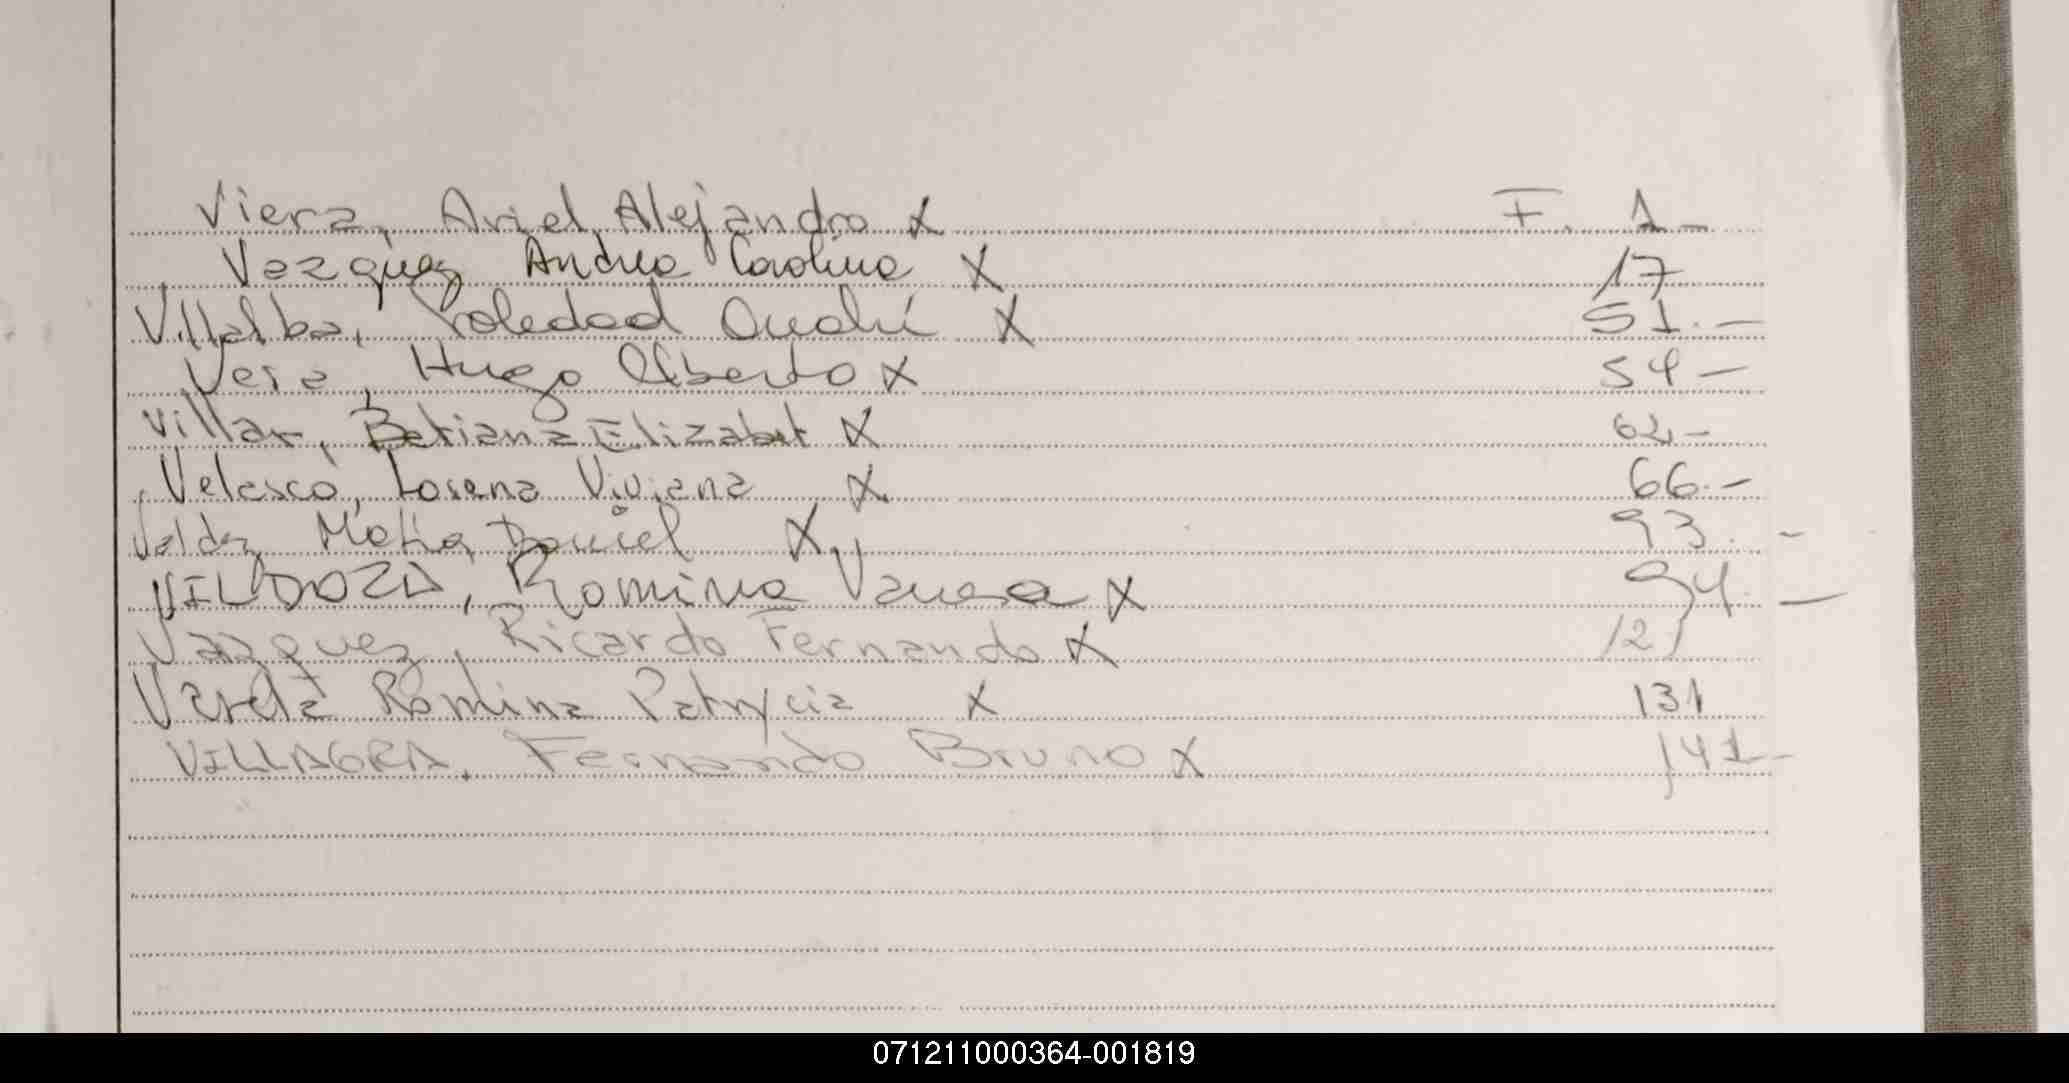 Viera, Ariel Alejandro X F. 1-
Vazquez Andrea Carolina X 17
Villalba, Soledad X 51.-
Vera, Hugo Alberto X 54-
Villar, Betiana Elizabet X 62-
Velasco, Lorena Viviana X 66.-
Valdez Daniel X 93. -
VILDOZA, Romina Vanesa X 94. -
Vazquez, Ricardo Fernando X 121
Varela Romina Patrycia X 131
VILLAGRA, Fernando Bruno X 141-
071211000364-001819